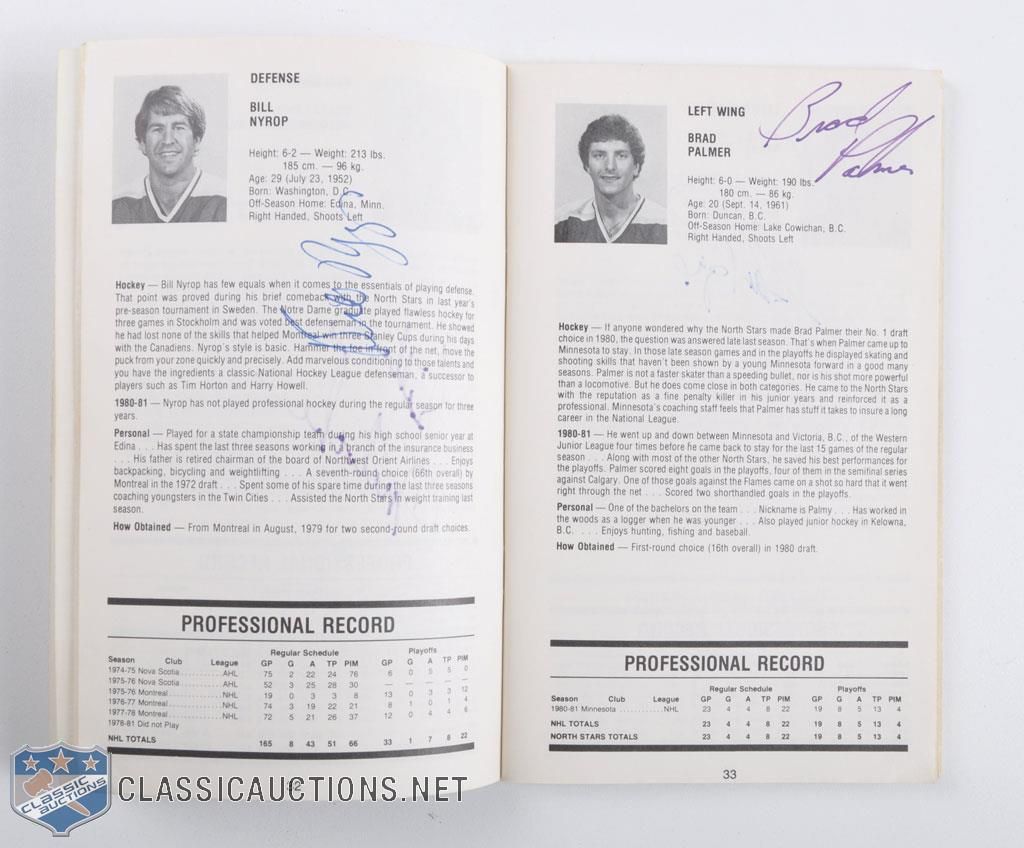 DEFENSE
BILL
NYROP
Height: 6-2 — Weight: 213 lbs.
185 cm. — 96 kg.
Age: 29 (July 23, 1952)
Born: Washington, D.C.
Off-Season Home: Edina, Minn.
Right Handed, Shoots Left
Hockey — Bill Nyrop has few equals when it comes to the essentials of playing defense.
That point was proved during his brief comeback with the North Stars in last year's
pre-season tournament in Sweden. The Notre Dame graduate played flawless hockey for
three games in Stockholm and was voted best defenseman in the tournament. He showed
he had lost none of the skills that helped Montreal win three Stanley Cups during his days
with the Canadiens. Nyrop's style is basic. Hammer the foe in front of the net, move the
puck from your zone quickly and precisely. Add marvelous conditioning to those talents and
you have the ingredients a classic National Hockey League defenseman, a successor to
players such as Tim Horton and Harry Howell.
1980-81 — Nyrop has not played professional hockey during the regular season for three
years.
Personal — Played for a state championship team during his high school senior year at
Edina . . . Has spent the last three seasons working in a branch of the insurance business
. . . His father is retired chairman of the board of Northwest Orient Airlines . . . Enjoys
backpacking, bicycling and weightlifting . . . A seventh-round choice (66th overall) by
Montreal in the 1972 draft . . . Spent some of his spare time during the last three seasons
coaching youngsters in the Twin Cities . . . Assisted the North Stars in weight training last
season.
How Obtained — From Montreal in August, 1979 for two second-round draft choices.
PROFESSIONAL RECORD
Regular Schedule Playoffs
Season Club League GP G A TP PIM GP G A TP PIM
1974-75 Nova Scotia..........AHL 75 2 22 24 76 6 0 5 5 0
1975-76 Nova Scotia..........AHL 52 3 25 28 30 — — — — —
1975-76 Montreal.............NHL 19 0 3 3 8 13 0 3 3 12
1976-77 Montreal.............NHL 74 3 19 22 21 8 1 0 1 4
1977-78 Montreal.............NHL 72 5 21 26 37 12 0 4 4 6
1978-81 Did not Play
NHL TOTALS 165 8 43 51 66 33 1 7 8 22
LEFT WING
BRAD
PALMER
Brad
Palmer
Height: 6-0 — Weight: 190 lbs.
180 cm. — 86 kg.
Age: 20 (Sept. 14, 1961)
Born: Duncan, B.C.
Off-Season Home: Lake Cowichan, B.C.
Right Handed, Shoots Left
Hockey — If anyone wondered why the North Stars made Brad Palmer their No. 1 draft
choice in 1980, the question was answered late last season. That's when Palmer came up to
Minnesota to stay. In those late season games and in the playoffs he displayed skating and
shooting skills that haven't been shown by a young Minnesota forward in a good many
seasons. Palmer is not a faster skater than a speeding bullet, nor is his shot more powerful
than a locomotive. But he does come close in both categories. He came to the North Stars
with the reputation as a fine penalty killer in his junior years and reinforced it as a
professional. Minnesota's coaching staff feels that Palmer has stuff it takes to insure a long
career in the National League.
1980-81 — He went up and down between Minnesota and Victoria, B.C., of the Western
Junior League four times before he came back to stay for the last 15 games of the regular
season . . . Along with most of the other North Stars, he saved his best performances for
the playoffs. Palmer scored eight goals in the playoffs, four of them in the semifinal series
against Calgary. One of those goals against the Flames came on a shot so hard that it went
right through the net . . . Scored two shorthanded goals in the playoffs.
Personal — One of the bachelors on the team . . . Nickname is Palmy . . . Has worked in
the woods as a logger when he was younger . . . Also played junior hockey in Kelowna,
B.C. . . . Enjoys hunting, fishing and baseball.
How Obtained — First-round choice (16th overall) in 1980 draft.
PROFESSIONAL RECORD
Regular Schedule Playoffs
Season Club League GP G A TP PIM GP G A TP PIM
1980-81 Minnesota .............NHL 23 4 4 8 22 19 8 5 13 4
NHL TOTALS 23 4 4 8 22 19 8 5 13 4
NORTH STARS TOTALS 23 4 4 8 22 19 8 5 13 4
33
CLASSIC
AUCTIONS
CLASSICAUCTIONS.NET